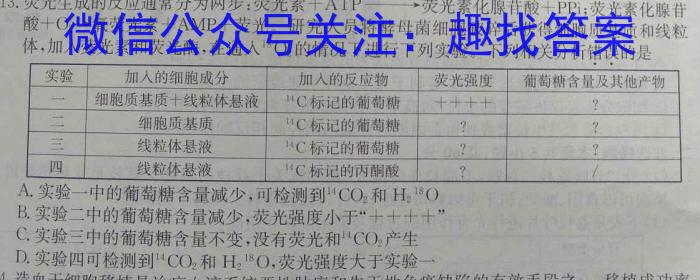 13.荧光生成的反应通常分为两步:荧光素+ATP → 荧光素化腺苷酸+PPi;荧光素化腺苷
酸+O
体,加
微信公众号关注:趣找答案
实验 加入的细胞成分 加入的反应物 荧光强度 葡萄糖含量及其他产物
一 细胞质基质+线粒体悬液 ¹⁴C标记的葡萄糖 ++++ ?
二 细胞质基质 ¹⁴C标记的葡萄糖 ? ?
三 线粒体悬液 ¹⁴C标记的葡萄糖 ? ?
四 线粒体悬液 ¹⁴C标记的丙酮酸 ? /
A.实验一中的葡萄糖含量减少,可检测到¹⁴CO₂和H₂¹⁸O
B.实验二中的葡萄糖含量减少,荧光强度小于“++++”
C.实验三中的葡萄糖含量不变,没有荧光和¹⁴CO₂产生
D.实验四可检测到¹⁴CO₂和H₂¹⁸O,荧光强度大于实验一